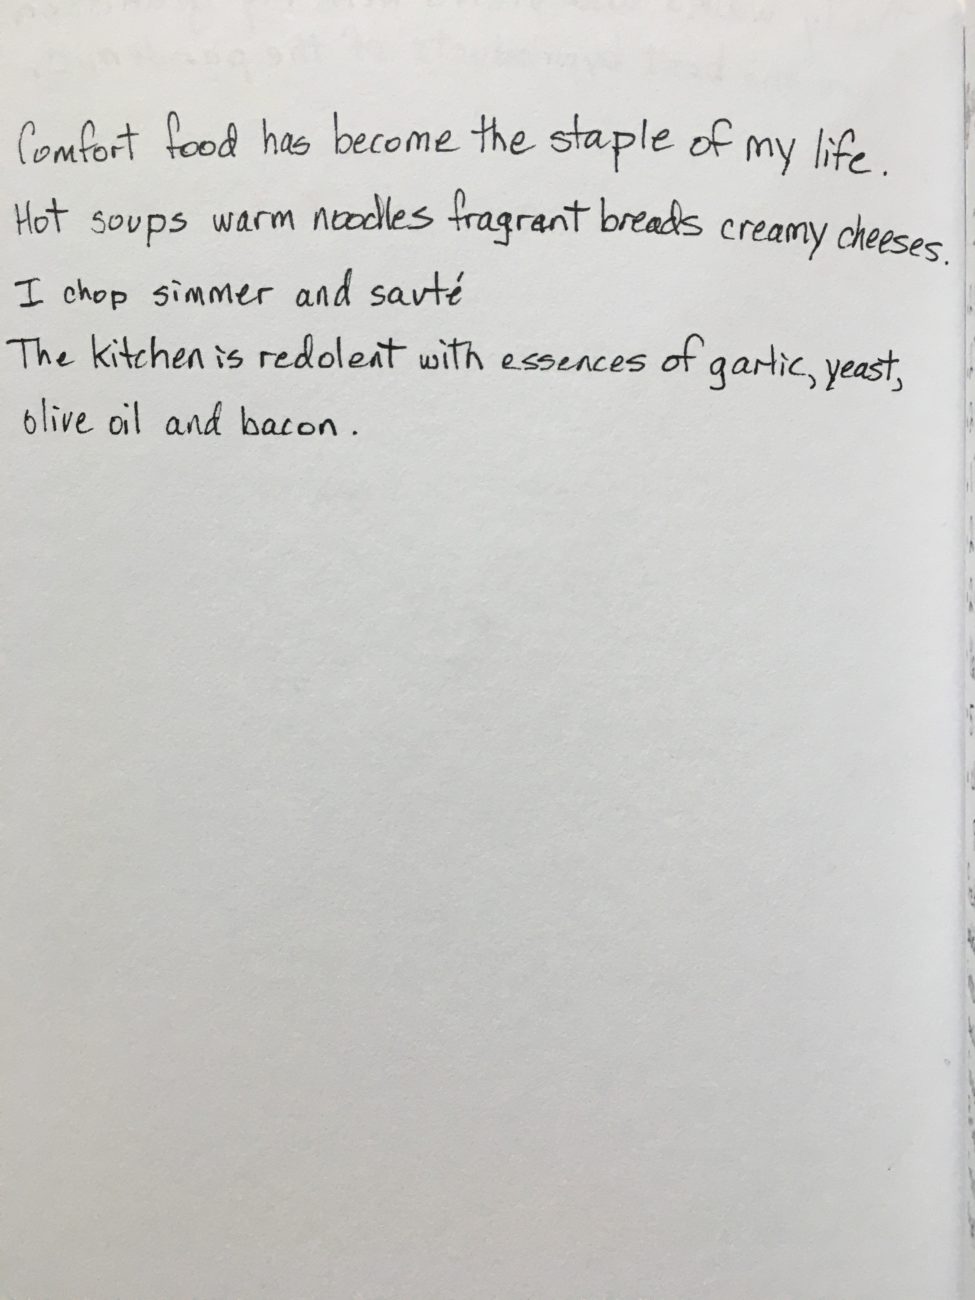 Comfort food has become the staple of my life.
Hot soups warm noodles fragrant breads creamy cheeses.
I chop simmer and sauté
The kitchen is redolent with essences of garlic, yeast,
olive oil and bacon.